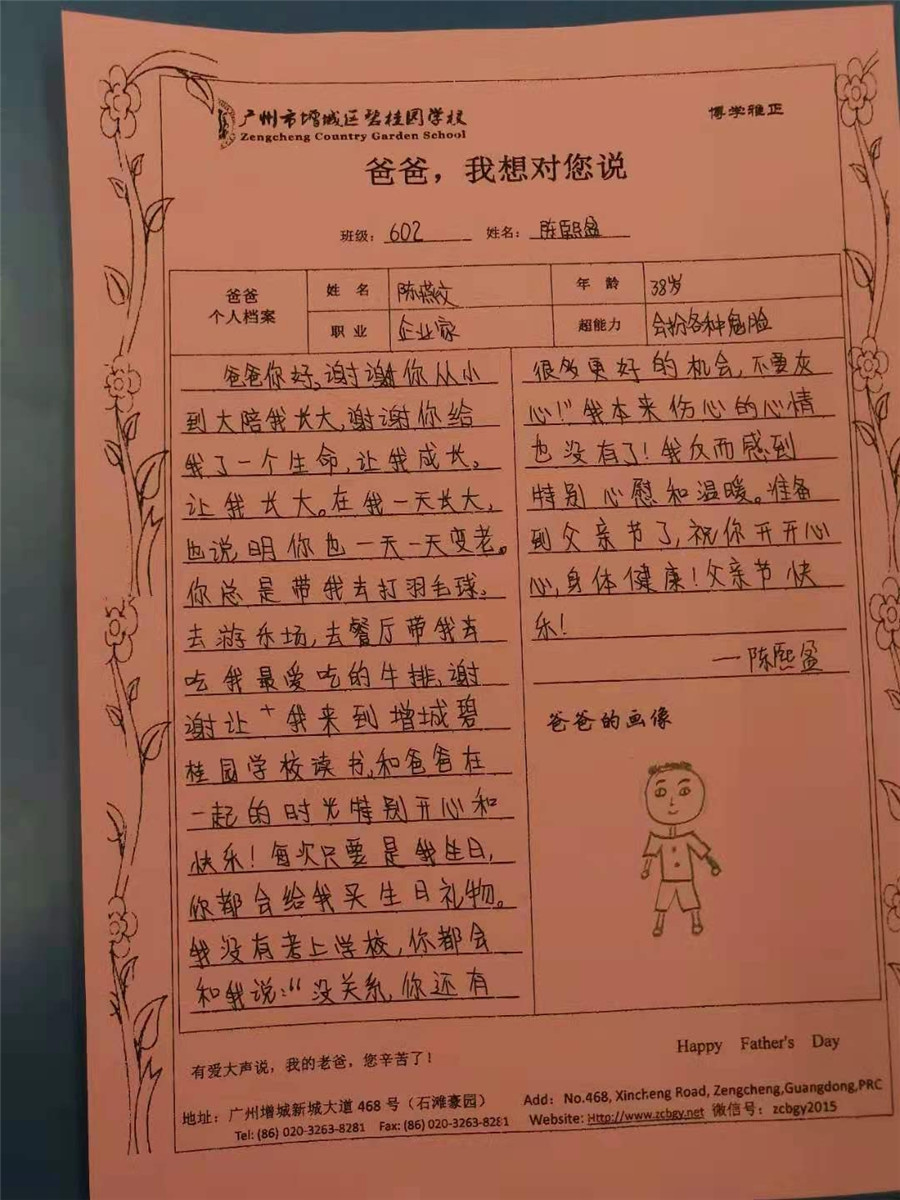 广州市增城区碧桂园学校
Zengcheng Country Garden School
博学雅正
爸爸，我想对您说
班级：602 姓名：陈熙盈
爸爸
个人档案
姓 名 陈燕文 年 龄 38岁
职 业 企业家 超能力 会扮各种鬼脸
爸爸你好,谢谢你从小
到大陪我长大,谢谢你给
我了一个生命,让我成长。
让我长大。在我一天长大,
也说明你也一天一天变老。
你总是带我去打羽毛球。
去游乐场,去餐厅带我去
吃我最爱吃的牛排,谢
谢让我来到增城碧
桂园学校读书,和爸爸在
一起的时光特别开心和
快乐！每次只要是我生日,
你都会给我买生日礼物。
我没有考上学校,你都会
和我说：“没关系,你还有
很多更好的机会,不要灰
心!”我本来伤心的心情
也没有了！我反而感到
特别心慰和温暖。准备
到父亲节了,祝你开开心
心,身体健康！父亲节快
乐！
—陈熙盈
爸爸的画像
有爱大声说，我的老爸，您辛苦了！
Happy Father's Day
地址：广州增城新城大道 468 号（石滩豪园）
Add：No.468, Xincheng Road, Zengcheng,Guangdong,PRC
Tel: (86) 020-3263-8281 Fax: (86) 020-3263-8281
Website: Http://www.zcbgy.net 微信号：zcbgy2015